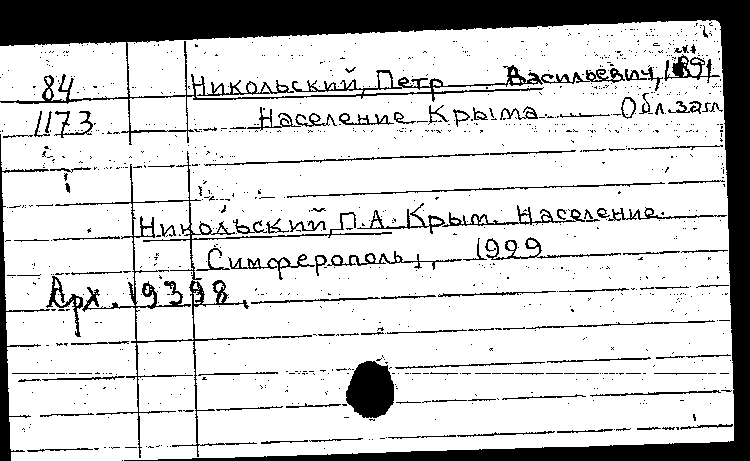 84 Никольский, Петр Васильевич, 1891
1173 Население Крыма .... Обл. загл
Никольский, П.А. Крым. Население.
Симферополь, 1929
Арх. 19398.